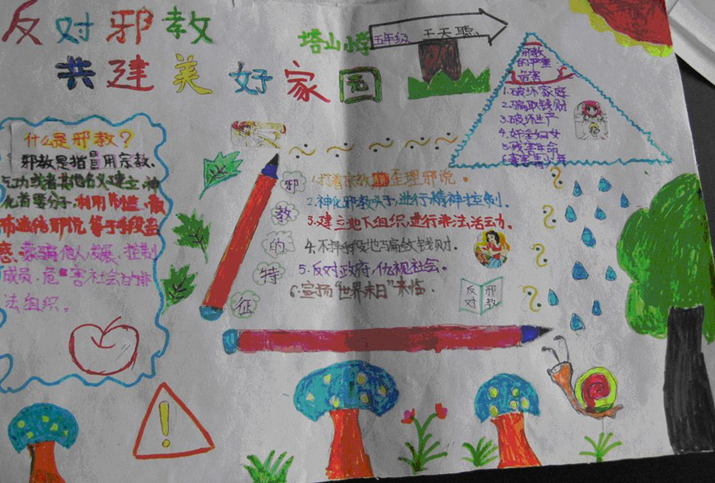 反对邪教
共建美好家园
塔山小学
五年级 于天聪
邪教
的严重
危害
1.破坏家庭
2.骗取钱财
3.破坏生产
4.奸淫妇女
5.残害生命
6.毒害青少年
什么是邪教?
邪教是指冒用宗教、
气功或者其他名义建立,神
化首要分子,利用制造、散
布迷信邪说等手段蛊
惑、蒙骗他人,发展、控制
成员,危害社会的非
法组织。
邪教的特征
1.打着宗教 歪理邪说。
2.神化邪教头子,进行精神控制。
3.建立地下组织,进行非法活动。
4.不择手段地骗敛钱财。
5.反对政府,仇视社会。
6.宣扬"世界末日"来临.
反对
邪教